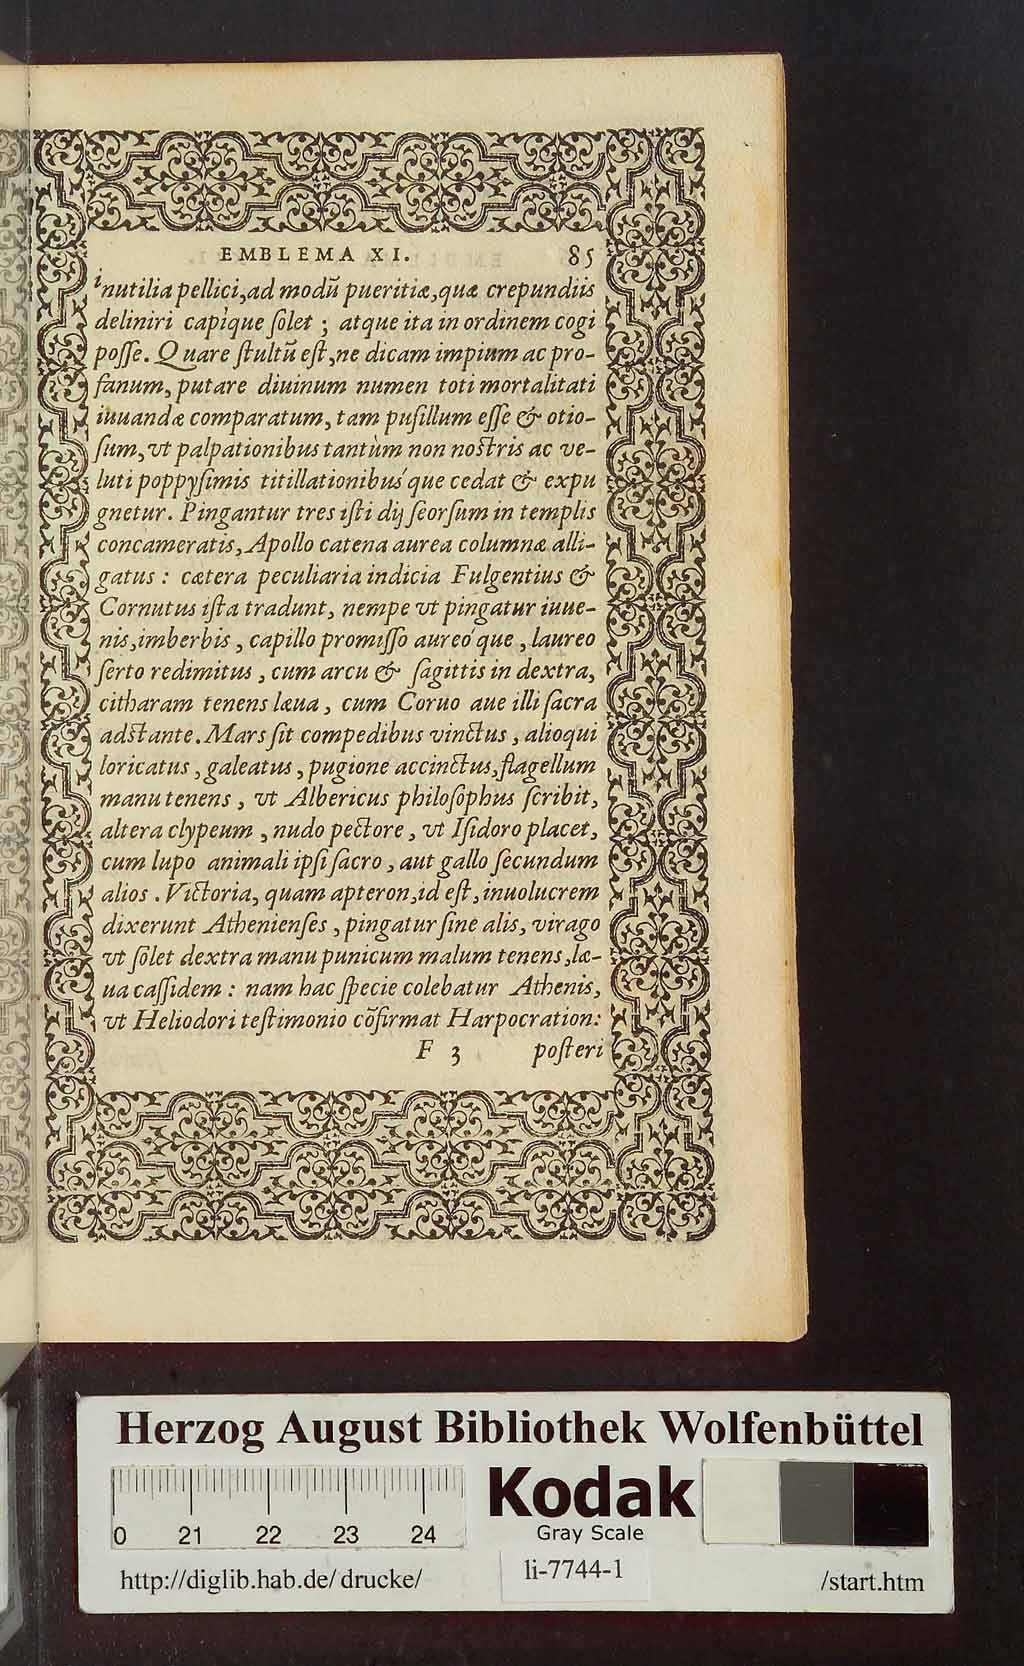 EMBLEMA XI. 85
inutilia pellici, ad modũ pueritiæ, quæ crepundiis
deliniri capìque ſolet ; atque ita in ordinem cogi
poſſe. Quare ſtultũ eſt, ne dicam impium ac pro-
fanum, putare diuinum numen toti mortalitati
iuuandæ comparatum, tam puſillum eſſe & otio-
ſum, vt palpationibus tantùm non noſtris ac ve-
luti poppyſimis titillationibús que cedat & expu
gnetur. Pingantur tres iſti dij ſeorſum in templis
concameratis, Apollo catena aurea columnæ alli-
gatus : cætera peculiaria indicia Fulgentius &
Cornutus iſta tradunt, nempe vt pingatur iuue-
nis, imberbis, capillo promiſſo aureó que, laureo
ſerto redimitus, cum arcu & ſagittis in dextra,
citharam tenens læua, cum Coruo aue illi ſacra
adſtante. Mars ſit compedibus vinctus, alioqui
loricatus, galeatus, pugione accinctus, flagellum
manu tenens, vt Albericus philoſophus ſcribit,
altera clypeum, nudo pectore, vt Iſidoro placet,
cum lupo animali ipſi ſacro, aut gallo ſecundum
alios. Victoria, quam apteron, id eſt, inuolucrem
dixerunt Athenienſes, pingatur ſine alis, virago
vt ſolet dextra manu punicum malum tenens, læ-
ua caſſidem : nam hac ſpecie colebatur Athenis,
vt Heliodori teſtimonio cõfirmat Harpocration:
F 3 poſteri
Herzog August Bibliothek Wolfenbüttel
0 21 22 23 24
Kodak
Gray Scale
li-7744-1
http://diglib.hab.de/drucke/
/start.htm